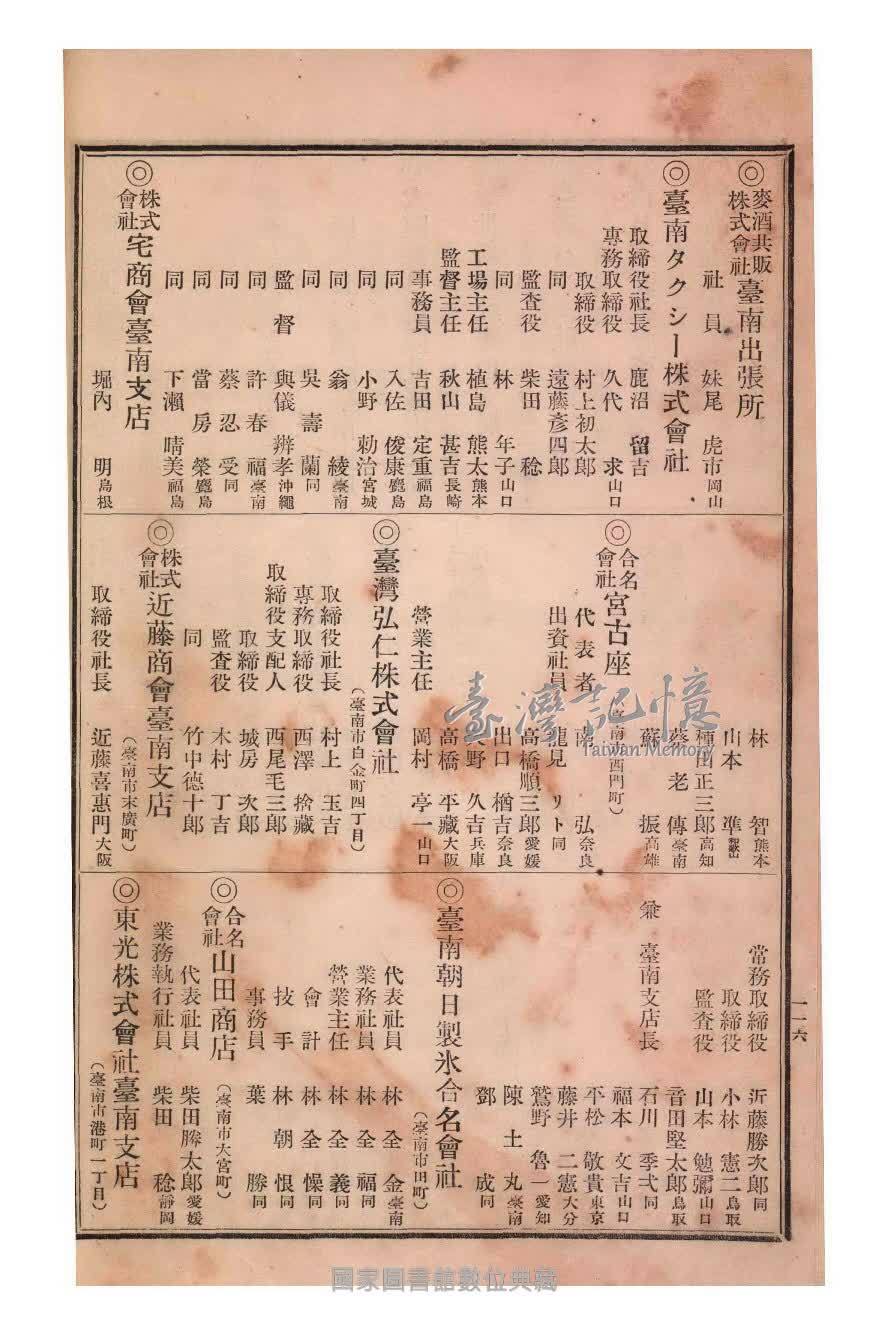 ◎麥酒共販株式會社臺南出張所
社員 妹尾虎市 岡山
◎臺南タクシー株式會社
取締役社長 鹿沼留吉
專務取締役 久代求 山口
取締役 村上初太郎
同 遠藤彥四郎
監査役 柴田稔
同 林年子 山口
工場主任 植島熊太 熊本
監督主任 秋山甚吉 長崎
事務員 吉田定重 福島
同 入佐俊康 鹿島
同 小野勅治 宮城
同 翁綾 臺南
同 吳壽蘭 同
監督 與儀辨孝 沖繩
同 許春福 臺南
同 蔡忍受 同
同 當房榮 鹿島
同 下瀨晴美 福島
◎株式會社宅商會臺南支店
堀內明 島根
林智 熊本
山本準 和歌山
種田正三郎 高知
蔡老傳 臺南
蘇振 高雄
◎合名會社宮古座
(臺南市西門町)
代表者 南弘 奈良
出資社員 龍見リト 同
高橋順三郎 愛媛
出口楢吉 奈良
野久吉 兵庫
高橋平藏 大阪
營業主任 岡村亭一 山口
◎臺灣弘仁株式會社
(臺南市白金町四丁目)
取締役社長 村上玉吉
專務取締役 西澤捨藏
取締役支配人 西尾毛三郎
取締役 城房次郎
監査役 木村丁吉
同 竹中德十郎
◎株式會社近藤商會臺南支店
(臺南市末廣町)
取締役社長 近藤喜惠門 大阪
常務取締役 近藤勝次郎 同
取締役 小林憲二 鳥取
監査役 山本勉彌 山口
音田堅太郎 鳥取
兼臺南支店長 石川季弍 同
福本文吉 山口
平松敬貴 東京
藤井二憲 大分
鷲野魯一 愛知
陳土丸 臺南
鄧成 同
◎臺南朝日製氷合名會社
(臺南市田町)
代表社員 林全金 臺南
業務社員 林全福 同
營業主任 林全義 同
會計 林全懆 同
技手 林朝恨 同
事務員 葉勝 同
◎合名會社山田商店
(臺南市大宮町)
代表社員 柴田勝太郎 愛媛
業務執行社員 柴田稔 靜岡
◎東光株式會社臺南支店
(臺南市港町一丁目)
一一六
臺灣記憶
Taiwan Memory
國家圖書館數位典藏